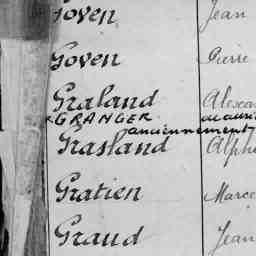 Goven Jean
Goven Pierre
Graland
GRANGER
anciennement
Grasland
Gratien
Graud Jean